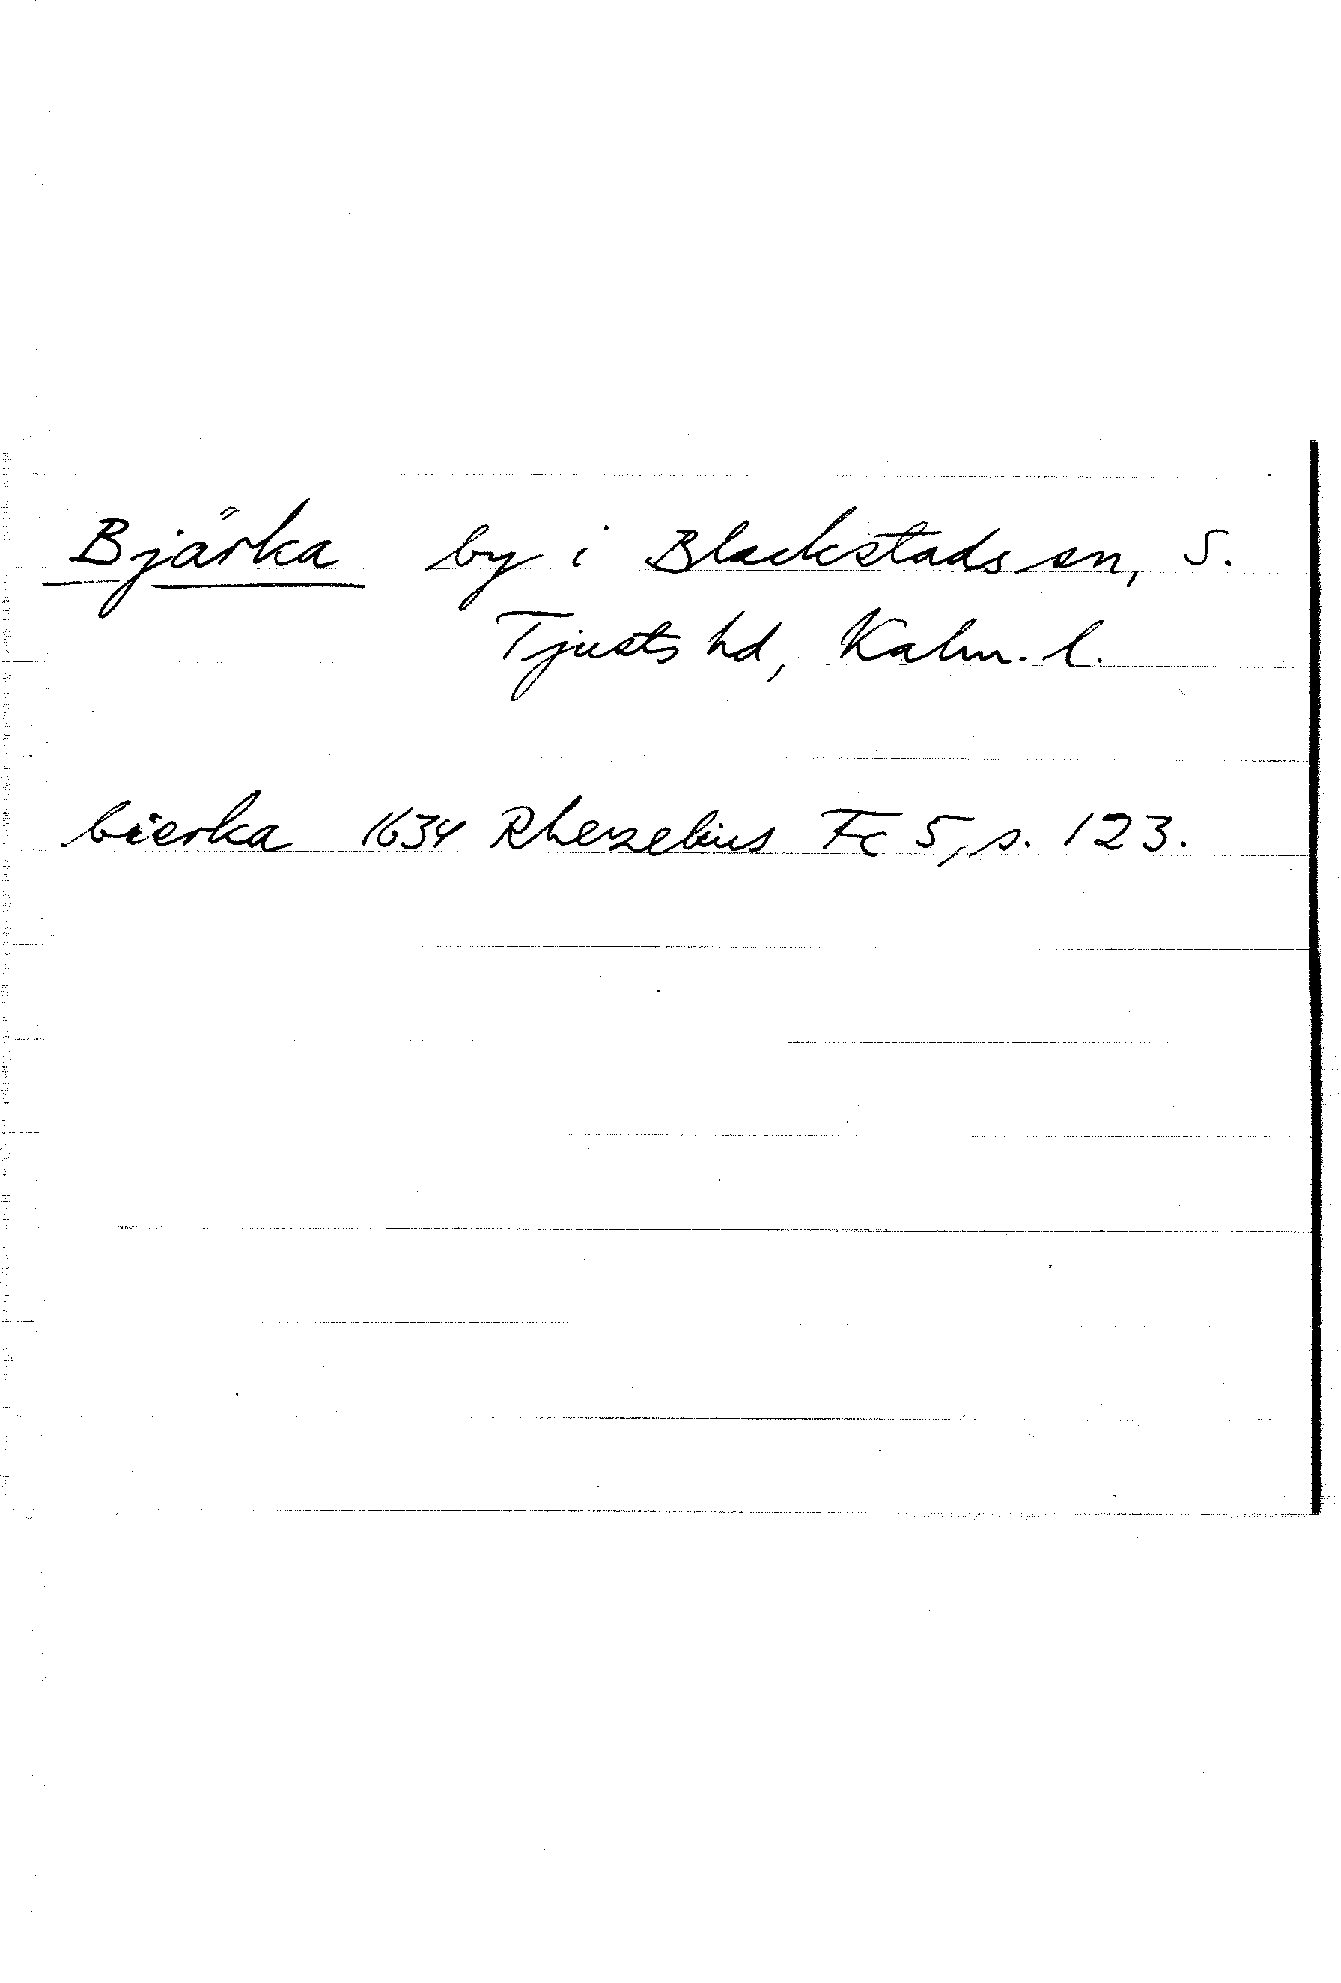 Bjärka by i Blackstads sn, S.
Tjusts hd, Kalm. l.
bierka 1634 Rhezelius Fc 5, s. 123.